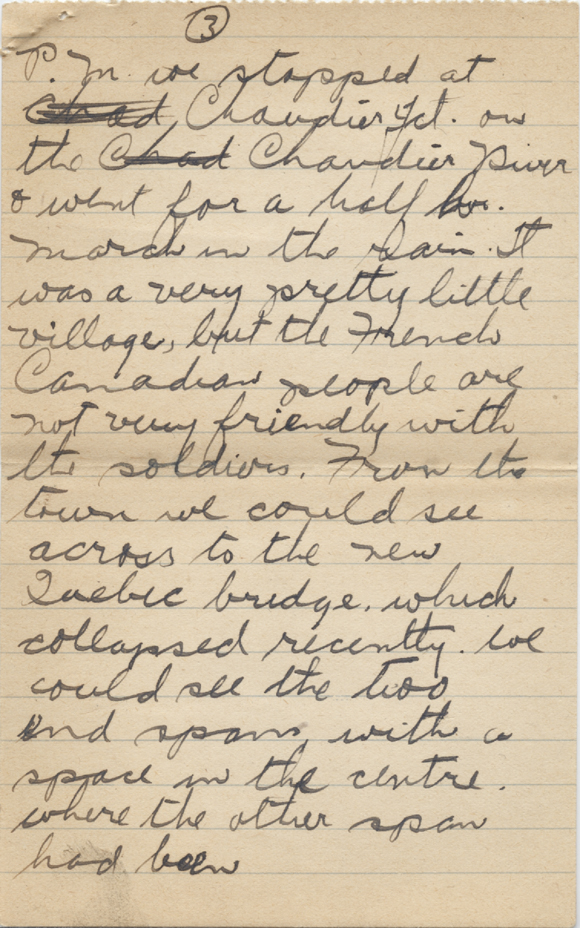 3
P.M. we stopped at
Chad Chaudier Jct. on
the Chad Chaudier River
& went for a half hr.
march in the rain. It
was a very pretty little
village, but the French
Canadian people are
not very friendly with
the soldiers. From the
town we could see
across to the new
Quebec bridge, which
collapsed recently. We
could see the two
end spans, with a
space in the centre.
where the other span
had been